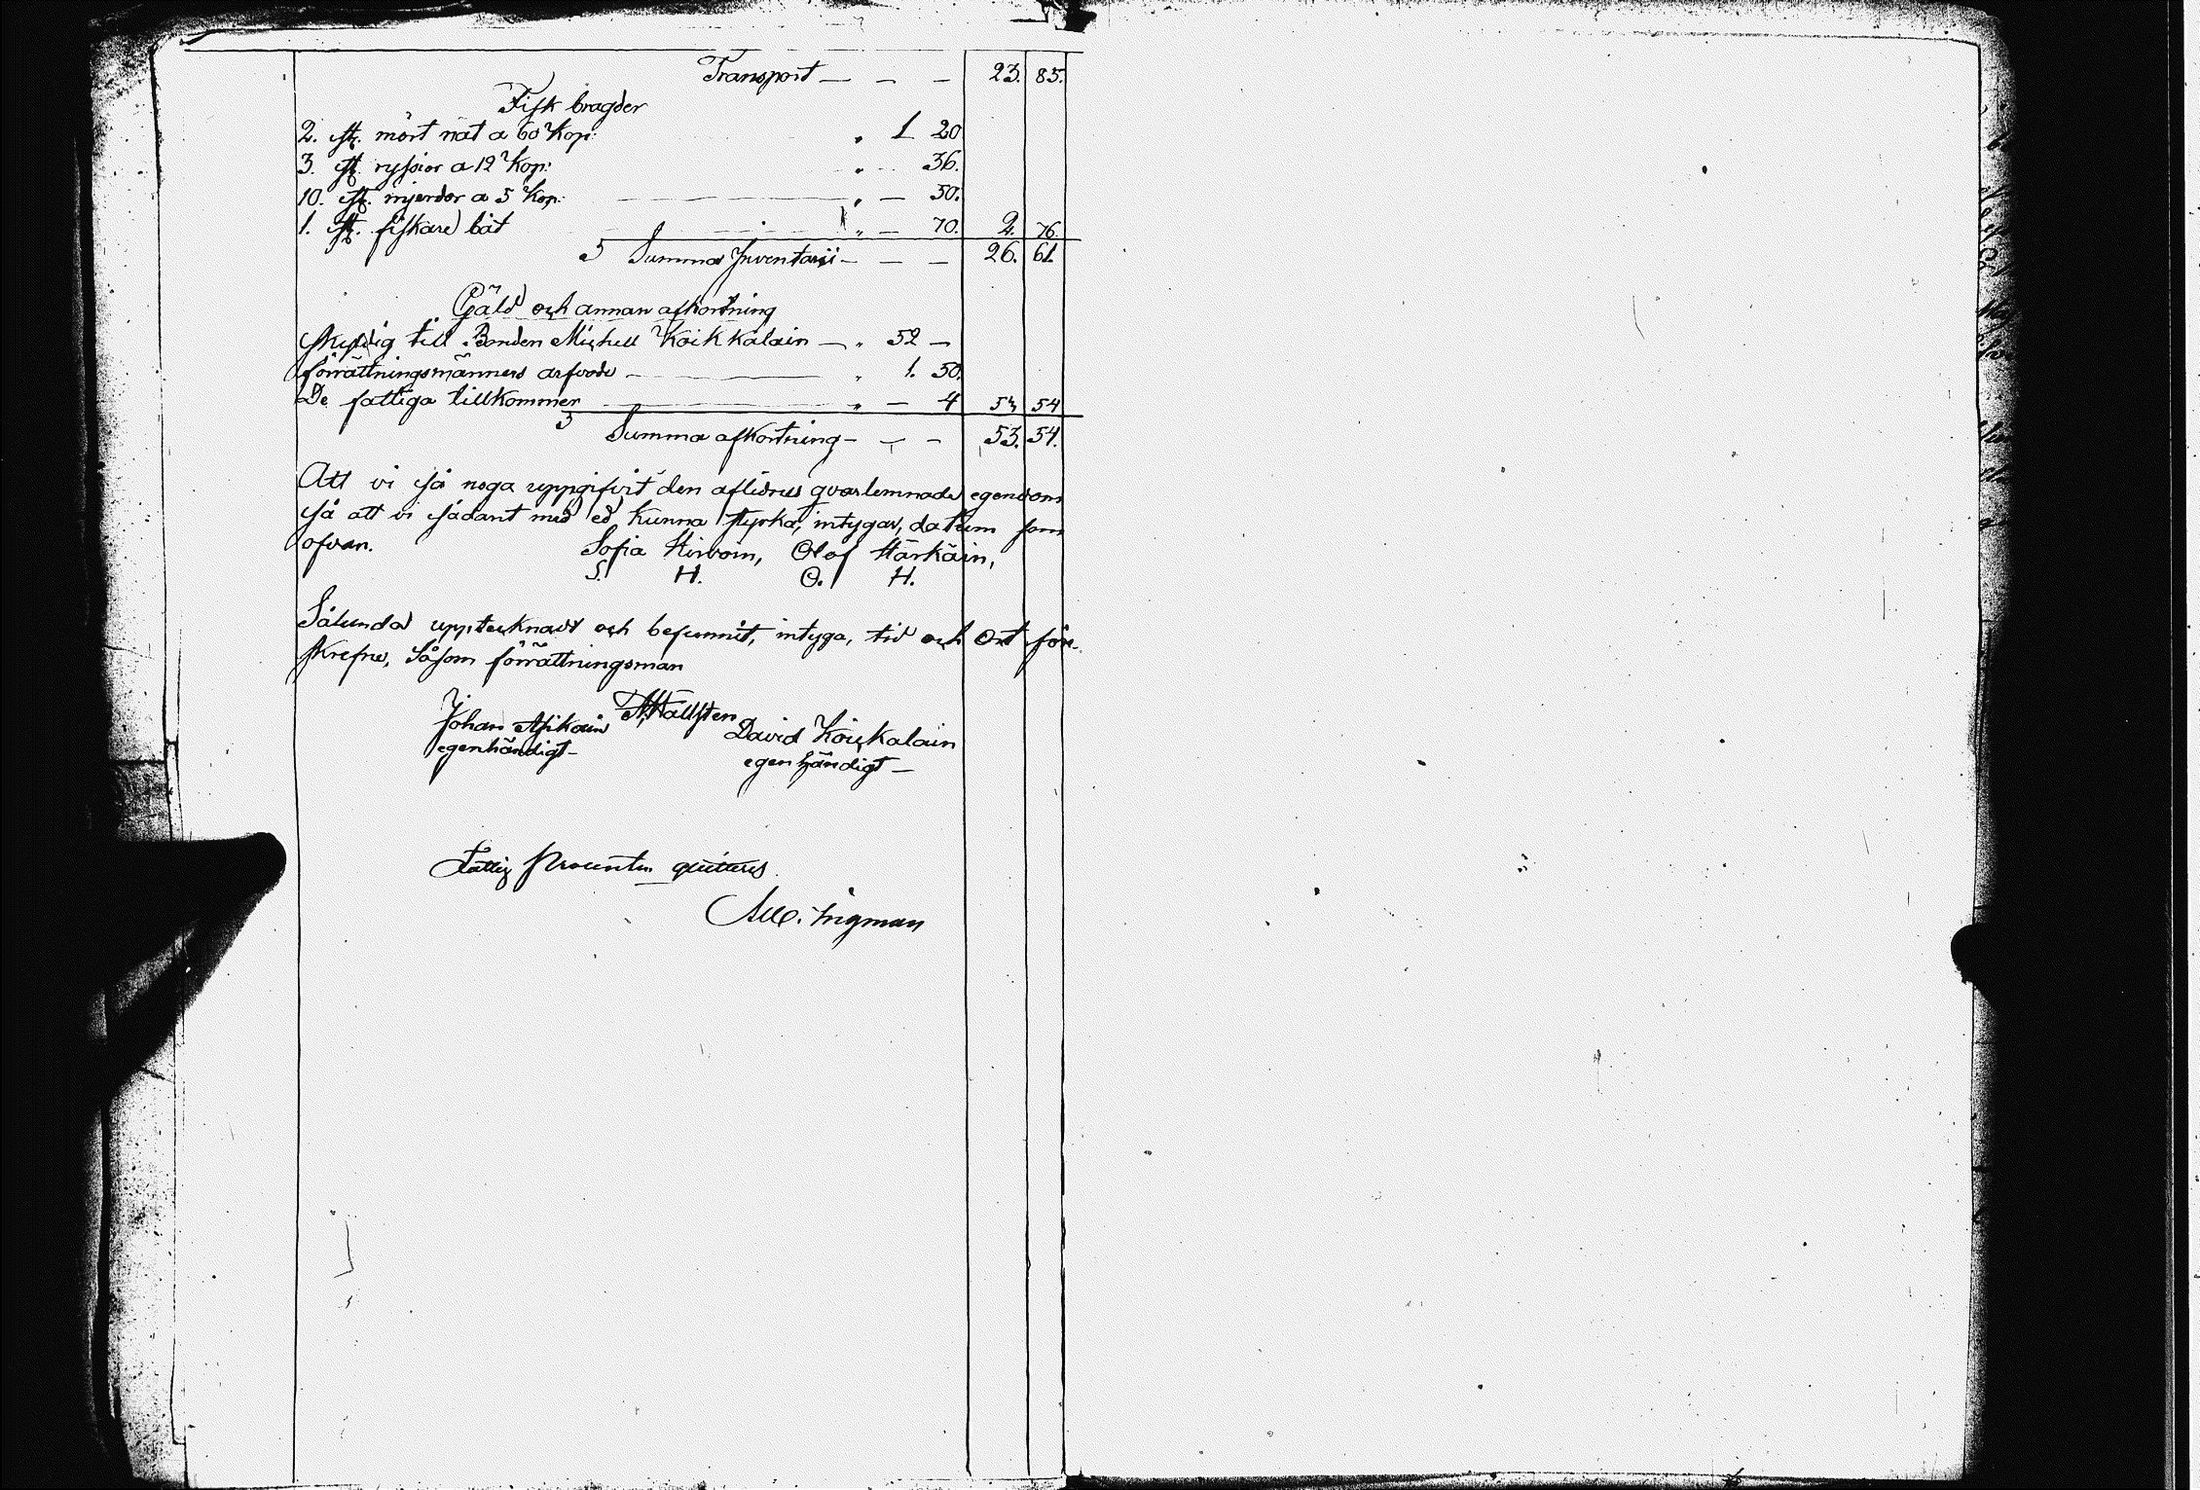 Transport — — — 23. 85.
Fisk bragder
2. st. mört nät a 60 Kop: " 1 20
3. st. ryssior a 12 Kop: " 36.
10. st. mjerdor a 5 Kop: " — 50.
1. st. fiskare båt " — 70. 2. 76.
Summa Inventarii — — — 26. 61.
Gäld och annan afkortning
Skyldig till Bonden Michell Koikkalain — " 52 —
förrättningsmänners arfvode — " 1. 50.
De fattiga tillkommer " — 4 53 54
Summa afkortning — — — 53. 54.
Att vi så noga uppgifvit den aflidnes qvarlemnade egendom
så att vi sådant med ed kunna styrka, intygar, datum som
ofvan. Sofia Hirvoin, Olof Härkäin,
S. H. O. H.
Sålunda upptecknadt och befunnit, intyga, tid och Ort för-
skrefne, Såsom förrättningsman
A Hällsten
Johan Asikain David Koickalain
egenhändigt — egenhändigt —
Fattig Procenten quitteras.
Ingman